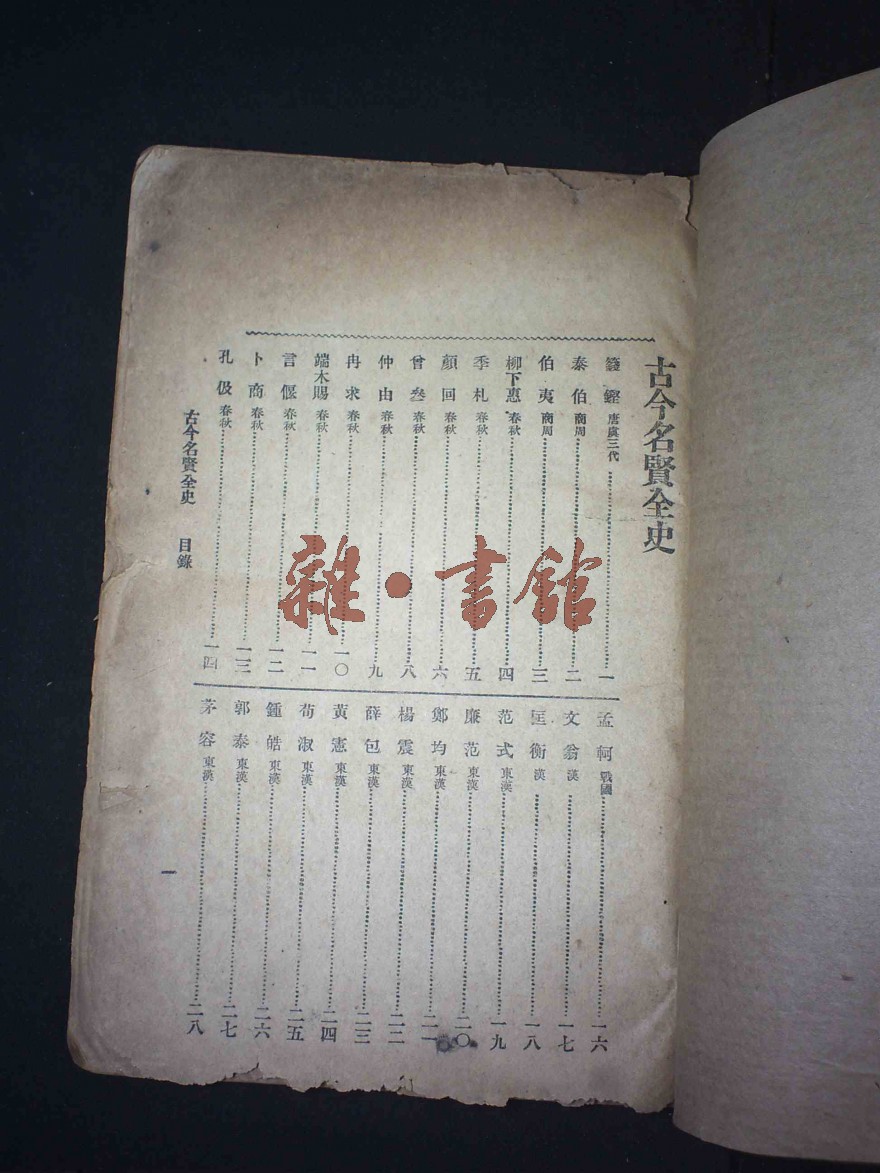 古今名賢全史
籛鏗 唐虞三代 一
泰伯 商周 二
伯夷 商周 三
柳下惠 春秋 四
季札 春秋 五
顏回 春秋 六
曾叁 春秋 八
仲由 春秋 九
冉求 春秋 一〇
端木賜 春秋 一一
言偃 春秋 一二
卜商 春秋 一三
孔伋 春秋 一四
孟軻 戰國 一六
文翁 漢 一七
匡衡 漢 一八
范式 東漢 一九
廉范 東漢 二〇
鄭均 東漢 二一
楊震 東漢 二二
薛包 東漢 二三
黃憲 東漢 二四
荀淑 東漢 二五
鍾皓 東漢 二六
郭泰 東漢 二七
茅容 東漢 二八
古今名賢全史 目錄
一
雜·書館